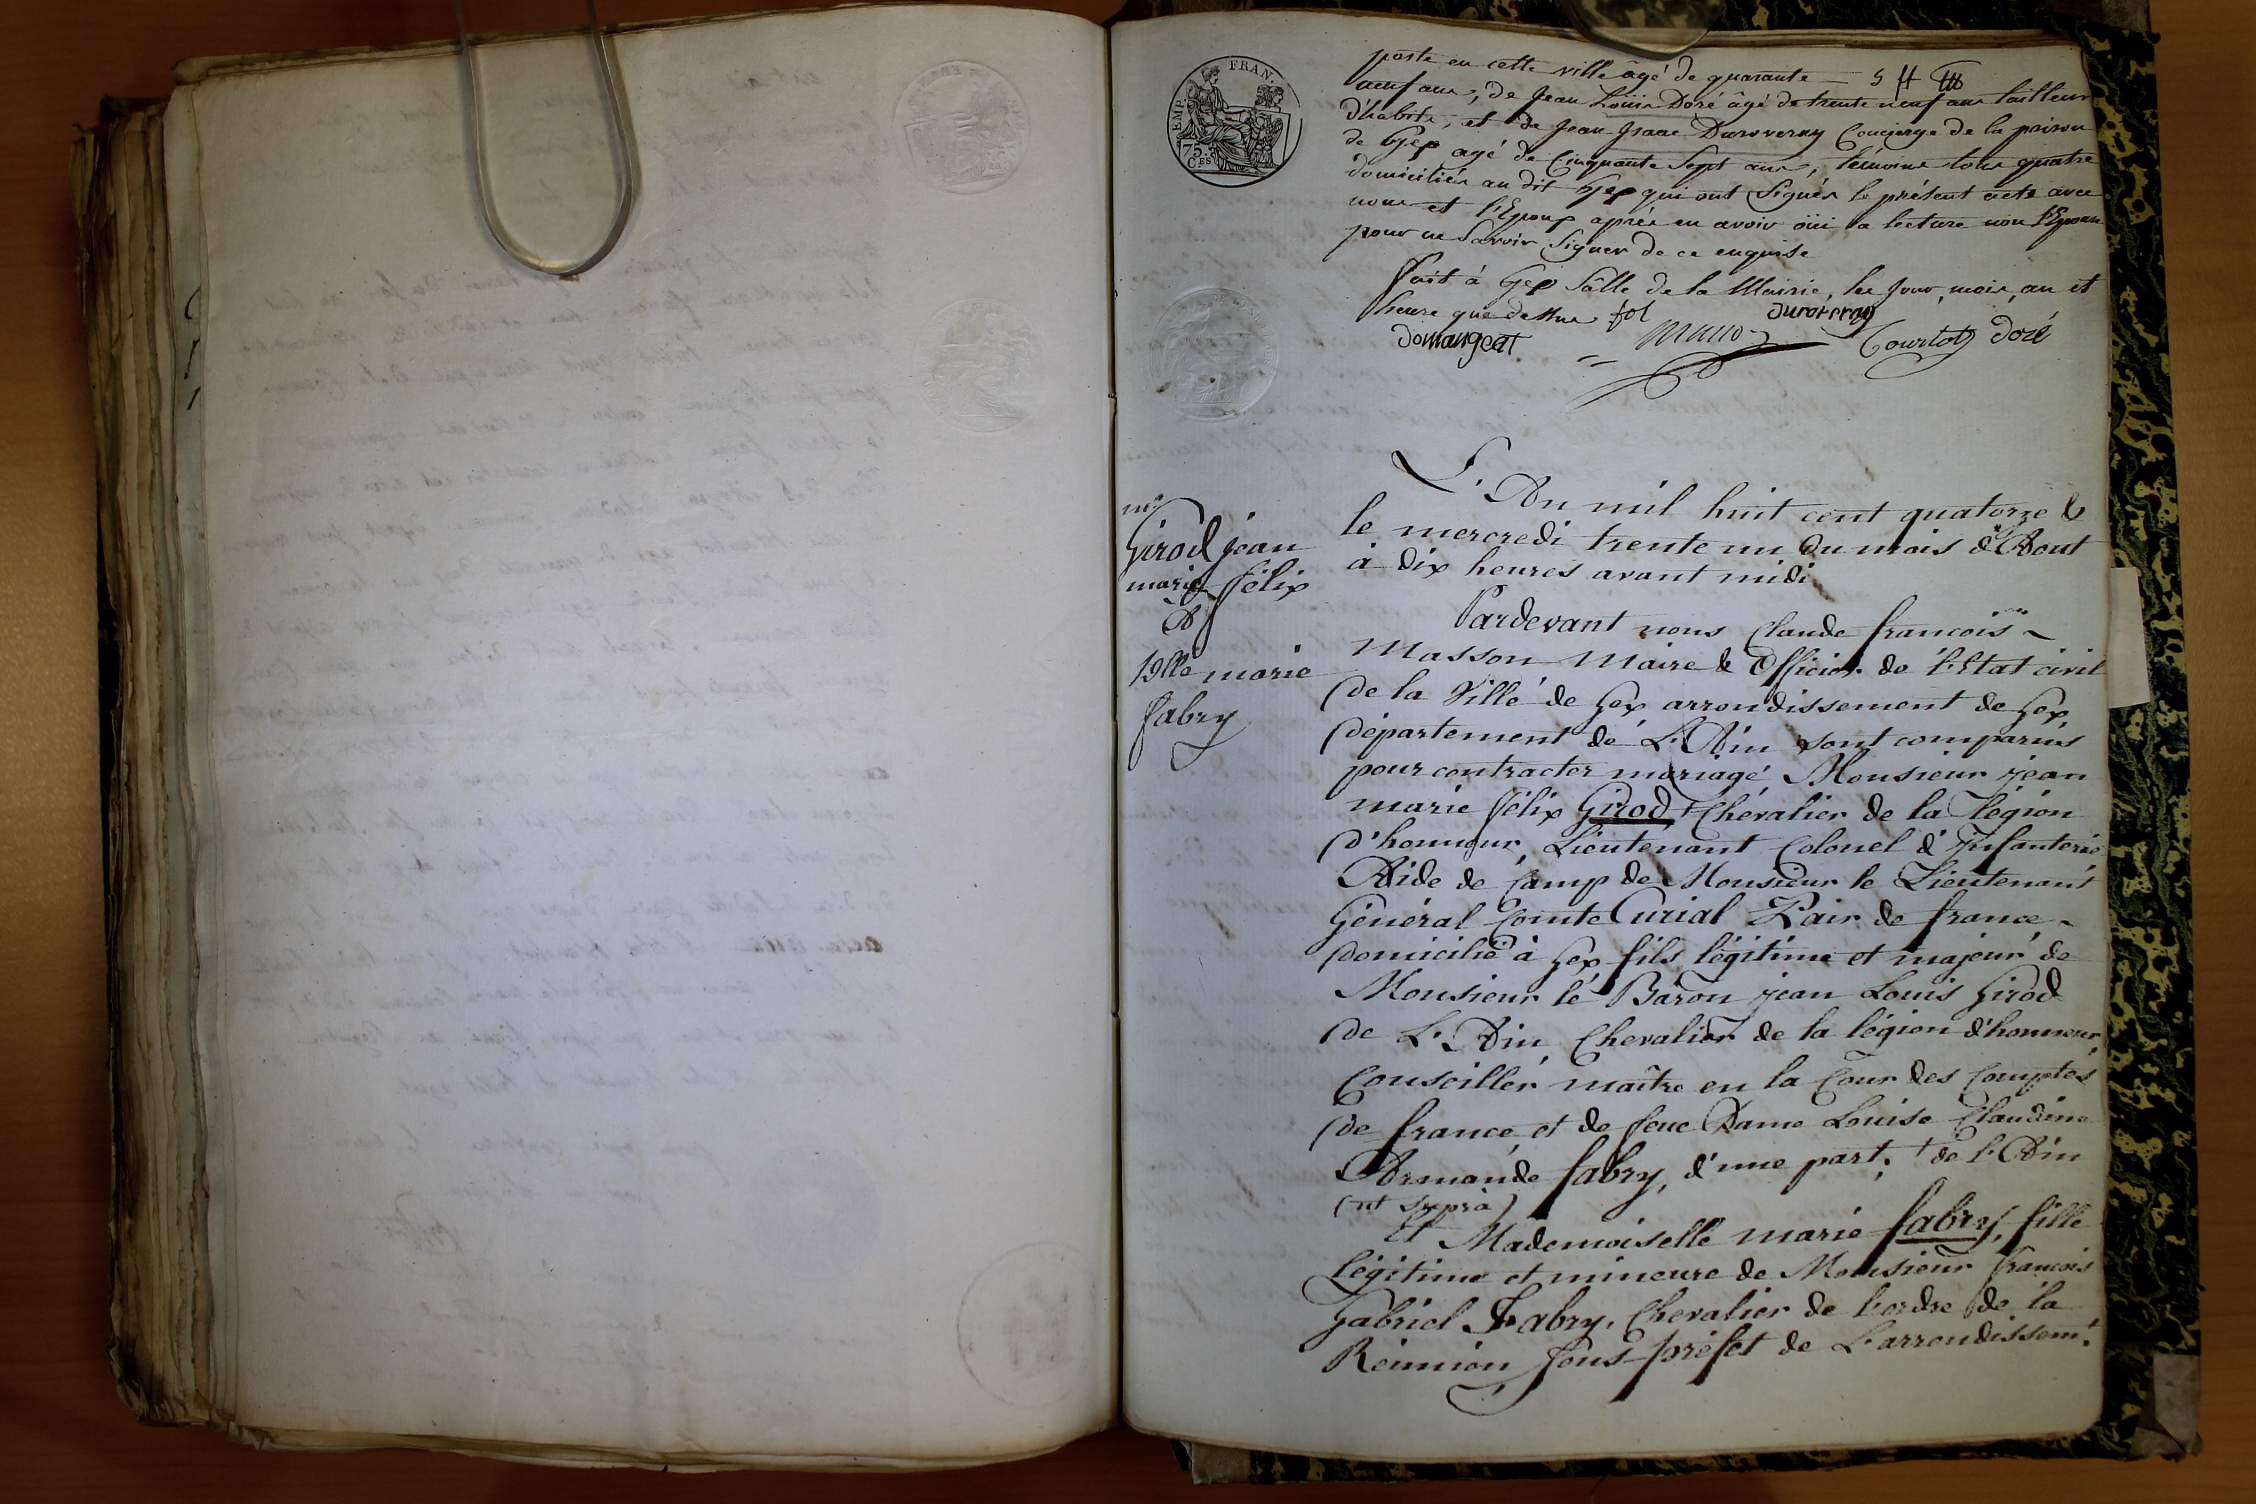 EMP. FRAN.
75
CES
poste en cette ville âgé de quarante
neuf ans, de Jean Louis Doré âgé de trente neuf ans tailleur
d'habits, et de Jean Isaac Duroveray Concierge de la prison
de Gex agé de Cinquante Sept ans, témoins tous quatre
domiciliés au dit Gex qui ont Signés le présent acte avec
nous et l'Epoux après en avoir öüi la lecture non l'Epouse
pour ne Savoir Signer de ce enquise
fait à Gex Sâlle de la Mairie, les Jour, mois, an et
heure que dessus fol duroveray
domangeat Courtot doré
L'An mil huit cent quatorze &
le mercredi trente un du mois d'Aout
à dix heures avant midi
Girod jean
marie félix
&
Dlle marie
fabry
Pardevant nous Claude françois
Masson Maire & Officier de l'Etat civil
de la Ville de Gex arrondissement de Gex,
département de L'Ain sont comparus
pour contracter mariage Monsieur jean
marie félix Girod + Chevalier de la Légion
d'honneur, Lieutenant Colonel d'Infanterie
Aide de Camp de Monsieur le Lieutenant
Général Comte Curial Pair de france
domicilié à Gex fils légitime et majeur de
Monsieur le Baron jean Louis Girod
de L'Ain, Chevalier de la légion d'honneur,
Conseiller maître en la Cour des Comptes
de france et de feue Dame Louise Claudine
Armande fabry, d'une part. + de l'Ain
(ut suprà)
Et Mademoiselle marie fabry, fille
légitime et mineure de Monsieur françois
Gabriel Fabry, Chevalier de l'ordre de la
Réunion Sous-préfet de L'arrondissemt.